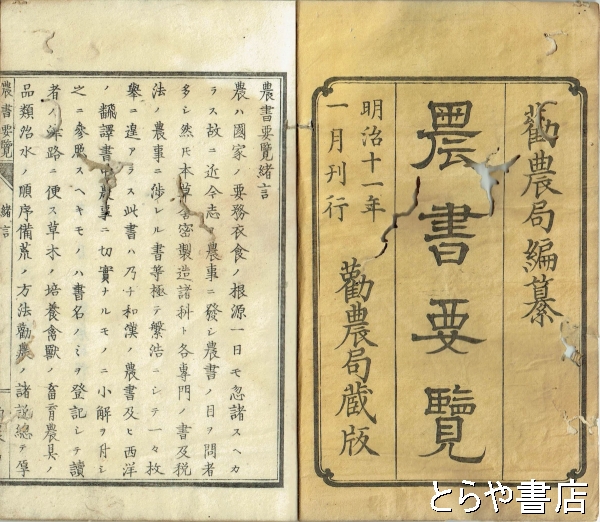 勸農局編纂
農書要覽
明治十一年
一月刊行
勸農局蔵版
農書要覽緒言
農ハ國家ノ要務衣食ノ根源一日モ忽諸スヘカ
ラス故ニ近今志ヲ農事ニ發シ農書ノ目ヲ問者
多シ然𪜈本草舎密製造諸科ト各専門ノ書及税
法ノ農事ニ渉レル書等極テ繁浩ニシテ一々枚
擧ニ遑アラス此書ハ乃チ和漢ノ農書及ヒ西洋
ノ飜譯書中農事ニ切實ナルモノニ小解ヲ付シ
之ニ參照スヘキモノハ書名ノミヲ登記シテ讀
者ノ 路ニ便ス草木ノ培養禽獸ノ畜育農具ノ
品類治水ノ順序備荒ノ方法勸農ノ諸説總テ
農書要覽
緒言
とらや書店